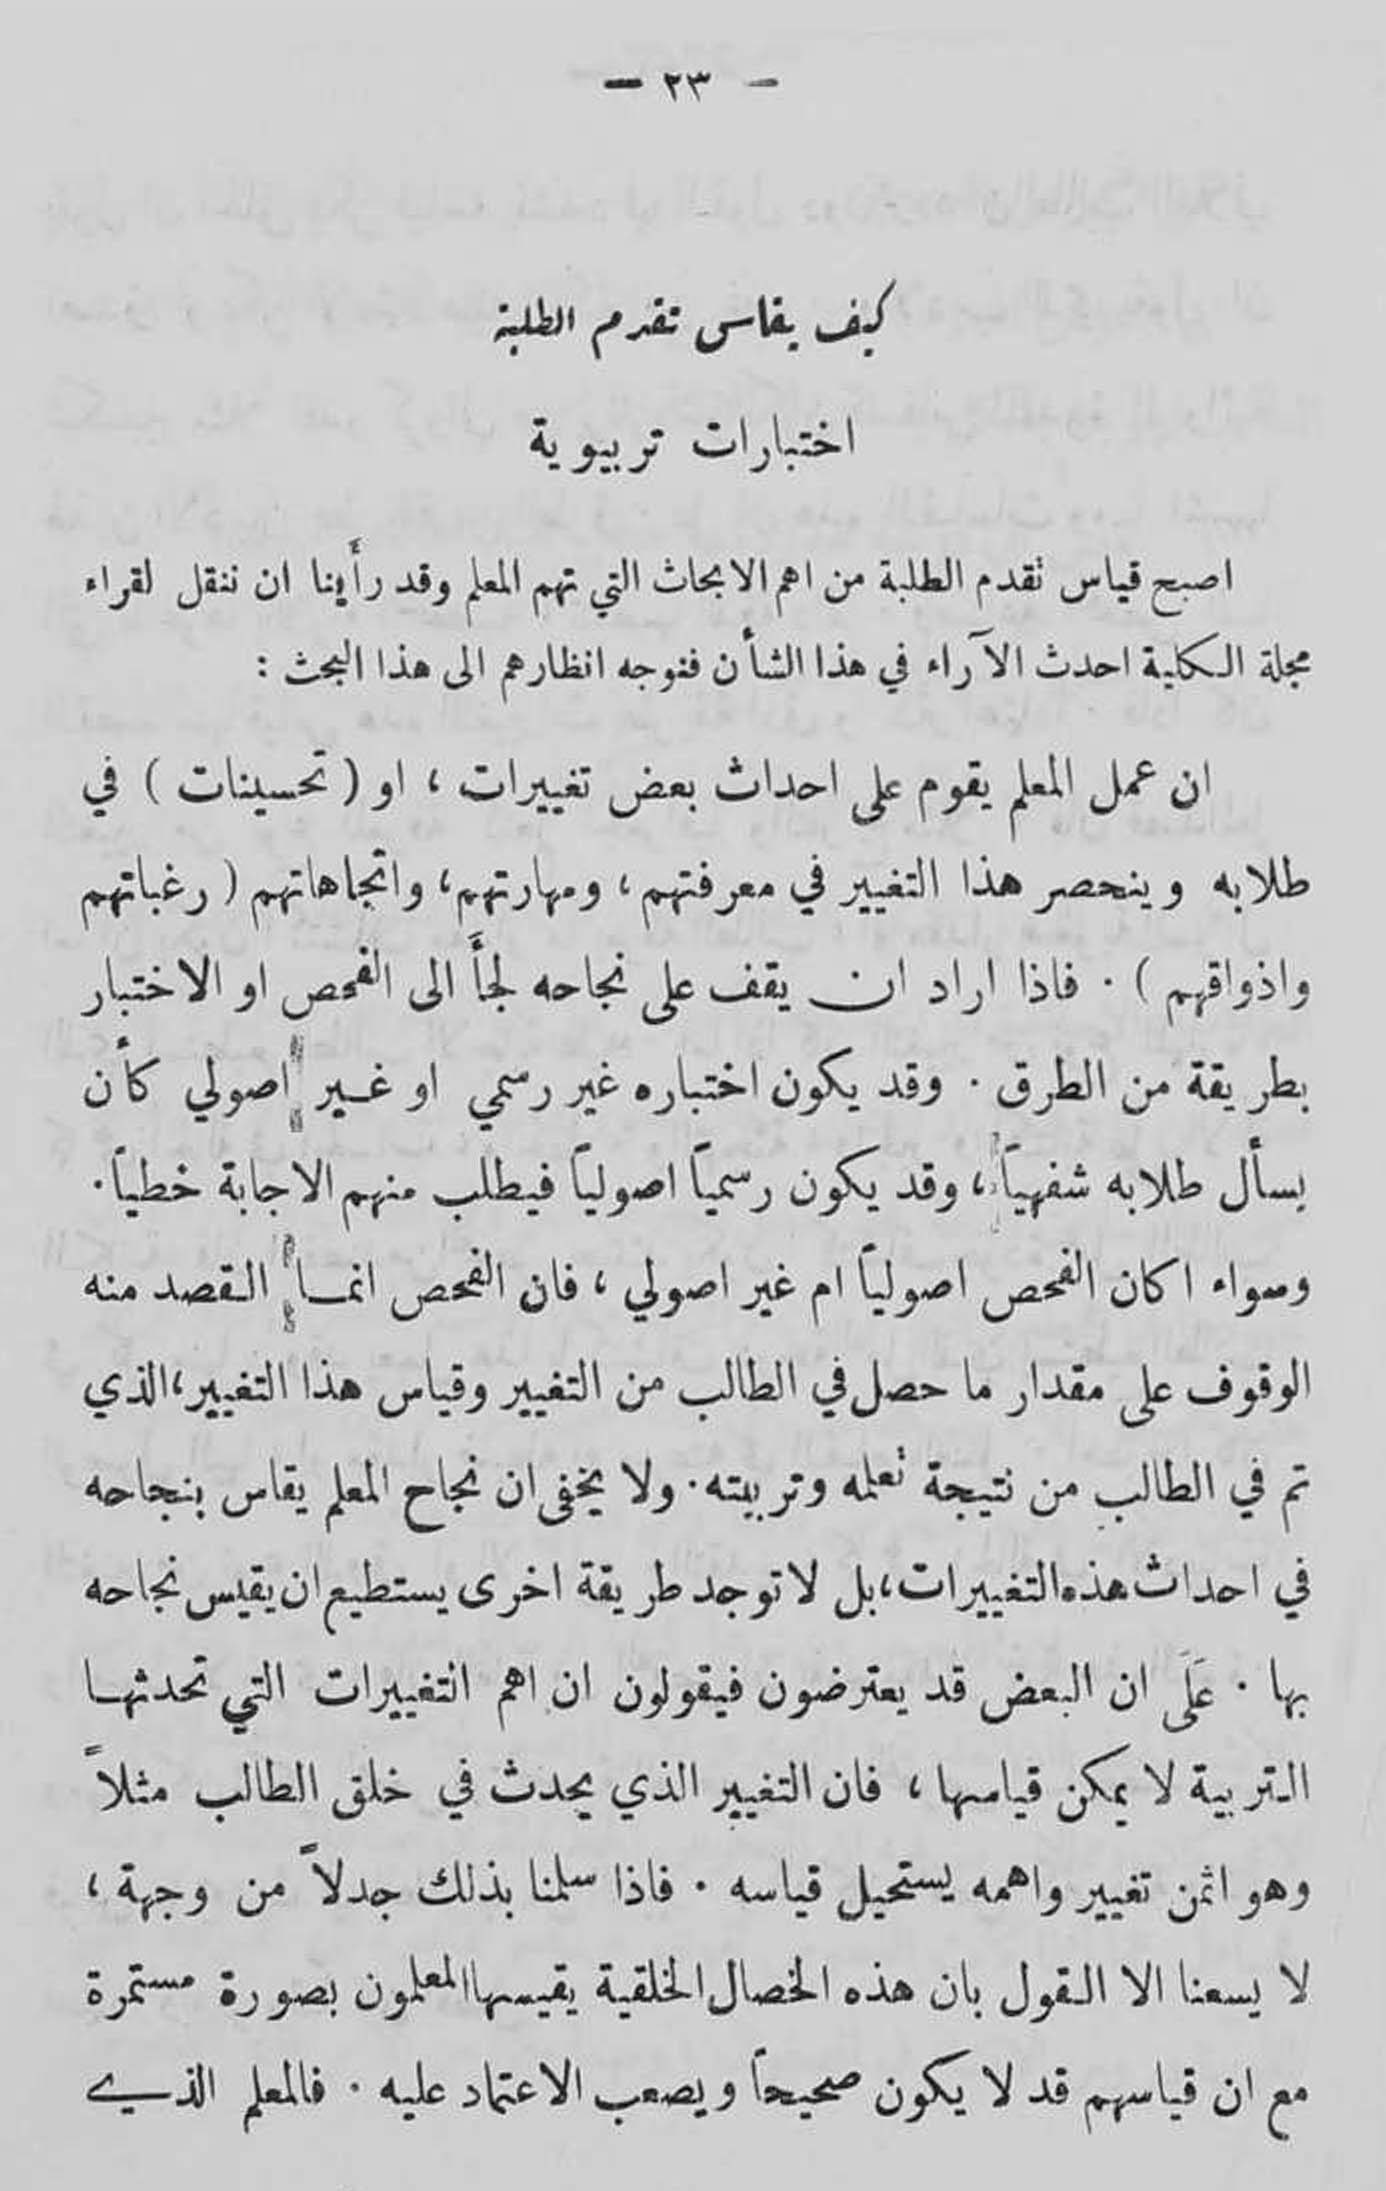 - ٢٣ -
كيف يقاس تقدم الطلبة
اختبارات تربيوية
اصبح قياس تقدم الطلبة من اهم الابحاث التي تهم المعلم وقد رأَينا ان ننقل لقراء
مجلة الكلية احدث الآراء في هذا الشأن فنوجه انظارهم الى هذا البحث :
ان عمل المعلم يقوم على احداث بعض تغييرات ، او ( تحسينات ) في
طلابه وينحصر هذا التغيير في معرفتهم ، ومهارتهم، واتجاهاتهم ( رغباتهم
واذواقهم ) . فاذا اراد ان يقف على نجاحه لجأَ الى الفحص او الاختبار
بطريقة من الطرق . وقد يكون اختباره غير رسمي او غير اصولي كأن
يسأل طلابه شفهياً ، وقد يكون رسمياً اصولياً فيطلب منهم الاجابة خطياً .
وسواء اكان الفحص اصولياً ام غير اصولي ، فان الفحص انما القصد منه
الوقوف على مقدار ما حصل في الطالب من التغيير وقياس هذا التغيير، الذي
تم في الطالب من نتيجة تعلمه وتربيته . ولا يخفى ان نجاح المعلم يقاس بنجاحه
في احداث هذه التغييرات، بل لا توجد طريقة اخرى يستطيع ان يقيس نجاحه
بها . عَلَى ان البعض قد يعترضون فيقولون ان اهم التغييرات التي تحدثها
التربية لا يمكن قياسها ، فان التغيير الذي يحدث في خلق الطالب مثلاً
وهو اثمن تغيير واهمه يستحيل قياسه . فاذا سلمنا بذلك جدلاً من وجهة ،
لا يسعنا الا القول بان هذه الخصال الخلقية يقيسها المعلمون بصورة مستمرة
مع ان قياسهم قد لا يكون صحيحاً ويصعب الاعتماد عليه . فالمعلم الذي